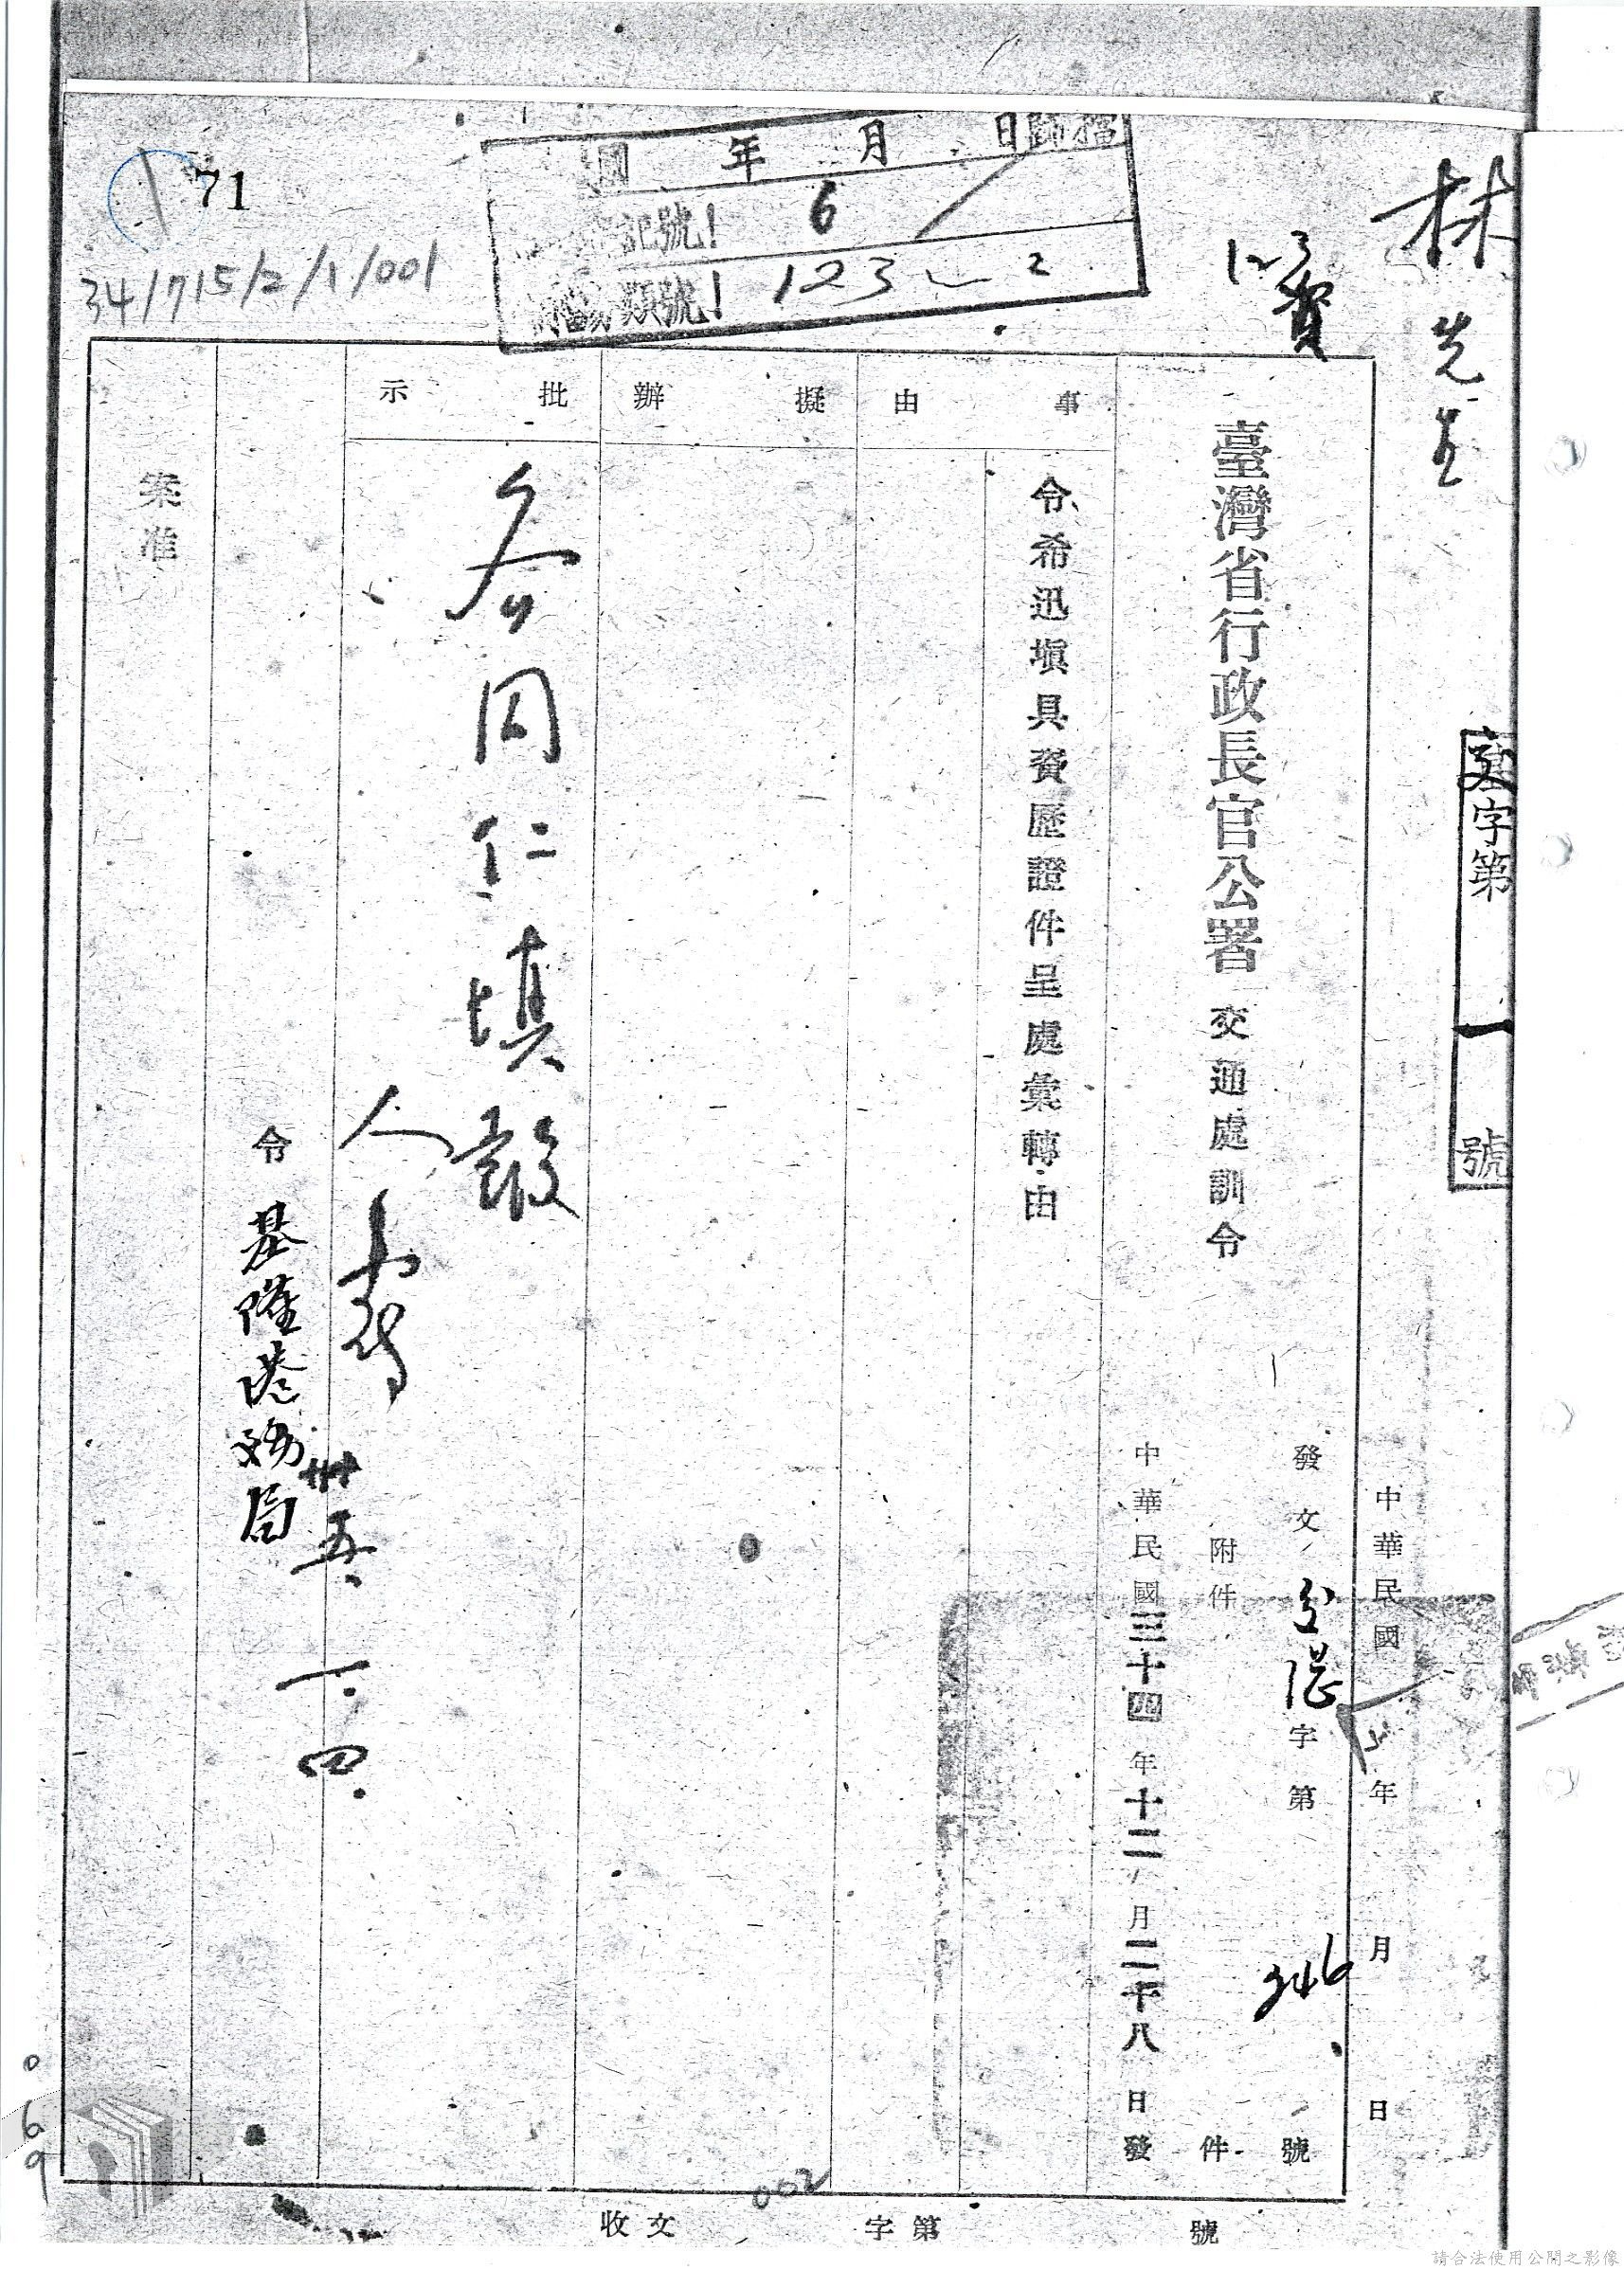 71
34/715/2/1/001
國 年 月 日歸檔
記號! 6
類號! 123 2
林先生
123
字第一號
中華民國 年 月 日
臺灣省行政長官公署交通處訓令
發文 字第946號
附件 件
中華民國三十四年十二月二十八日發
事由
令希迅塡具資歷證件呈處彙轉由
擬辦
批示
各同仁填報
卅五、一、四、
令 基隆港務局
案准
收文 字第 號
002
069
請合法使用公開之影像